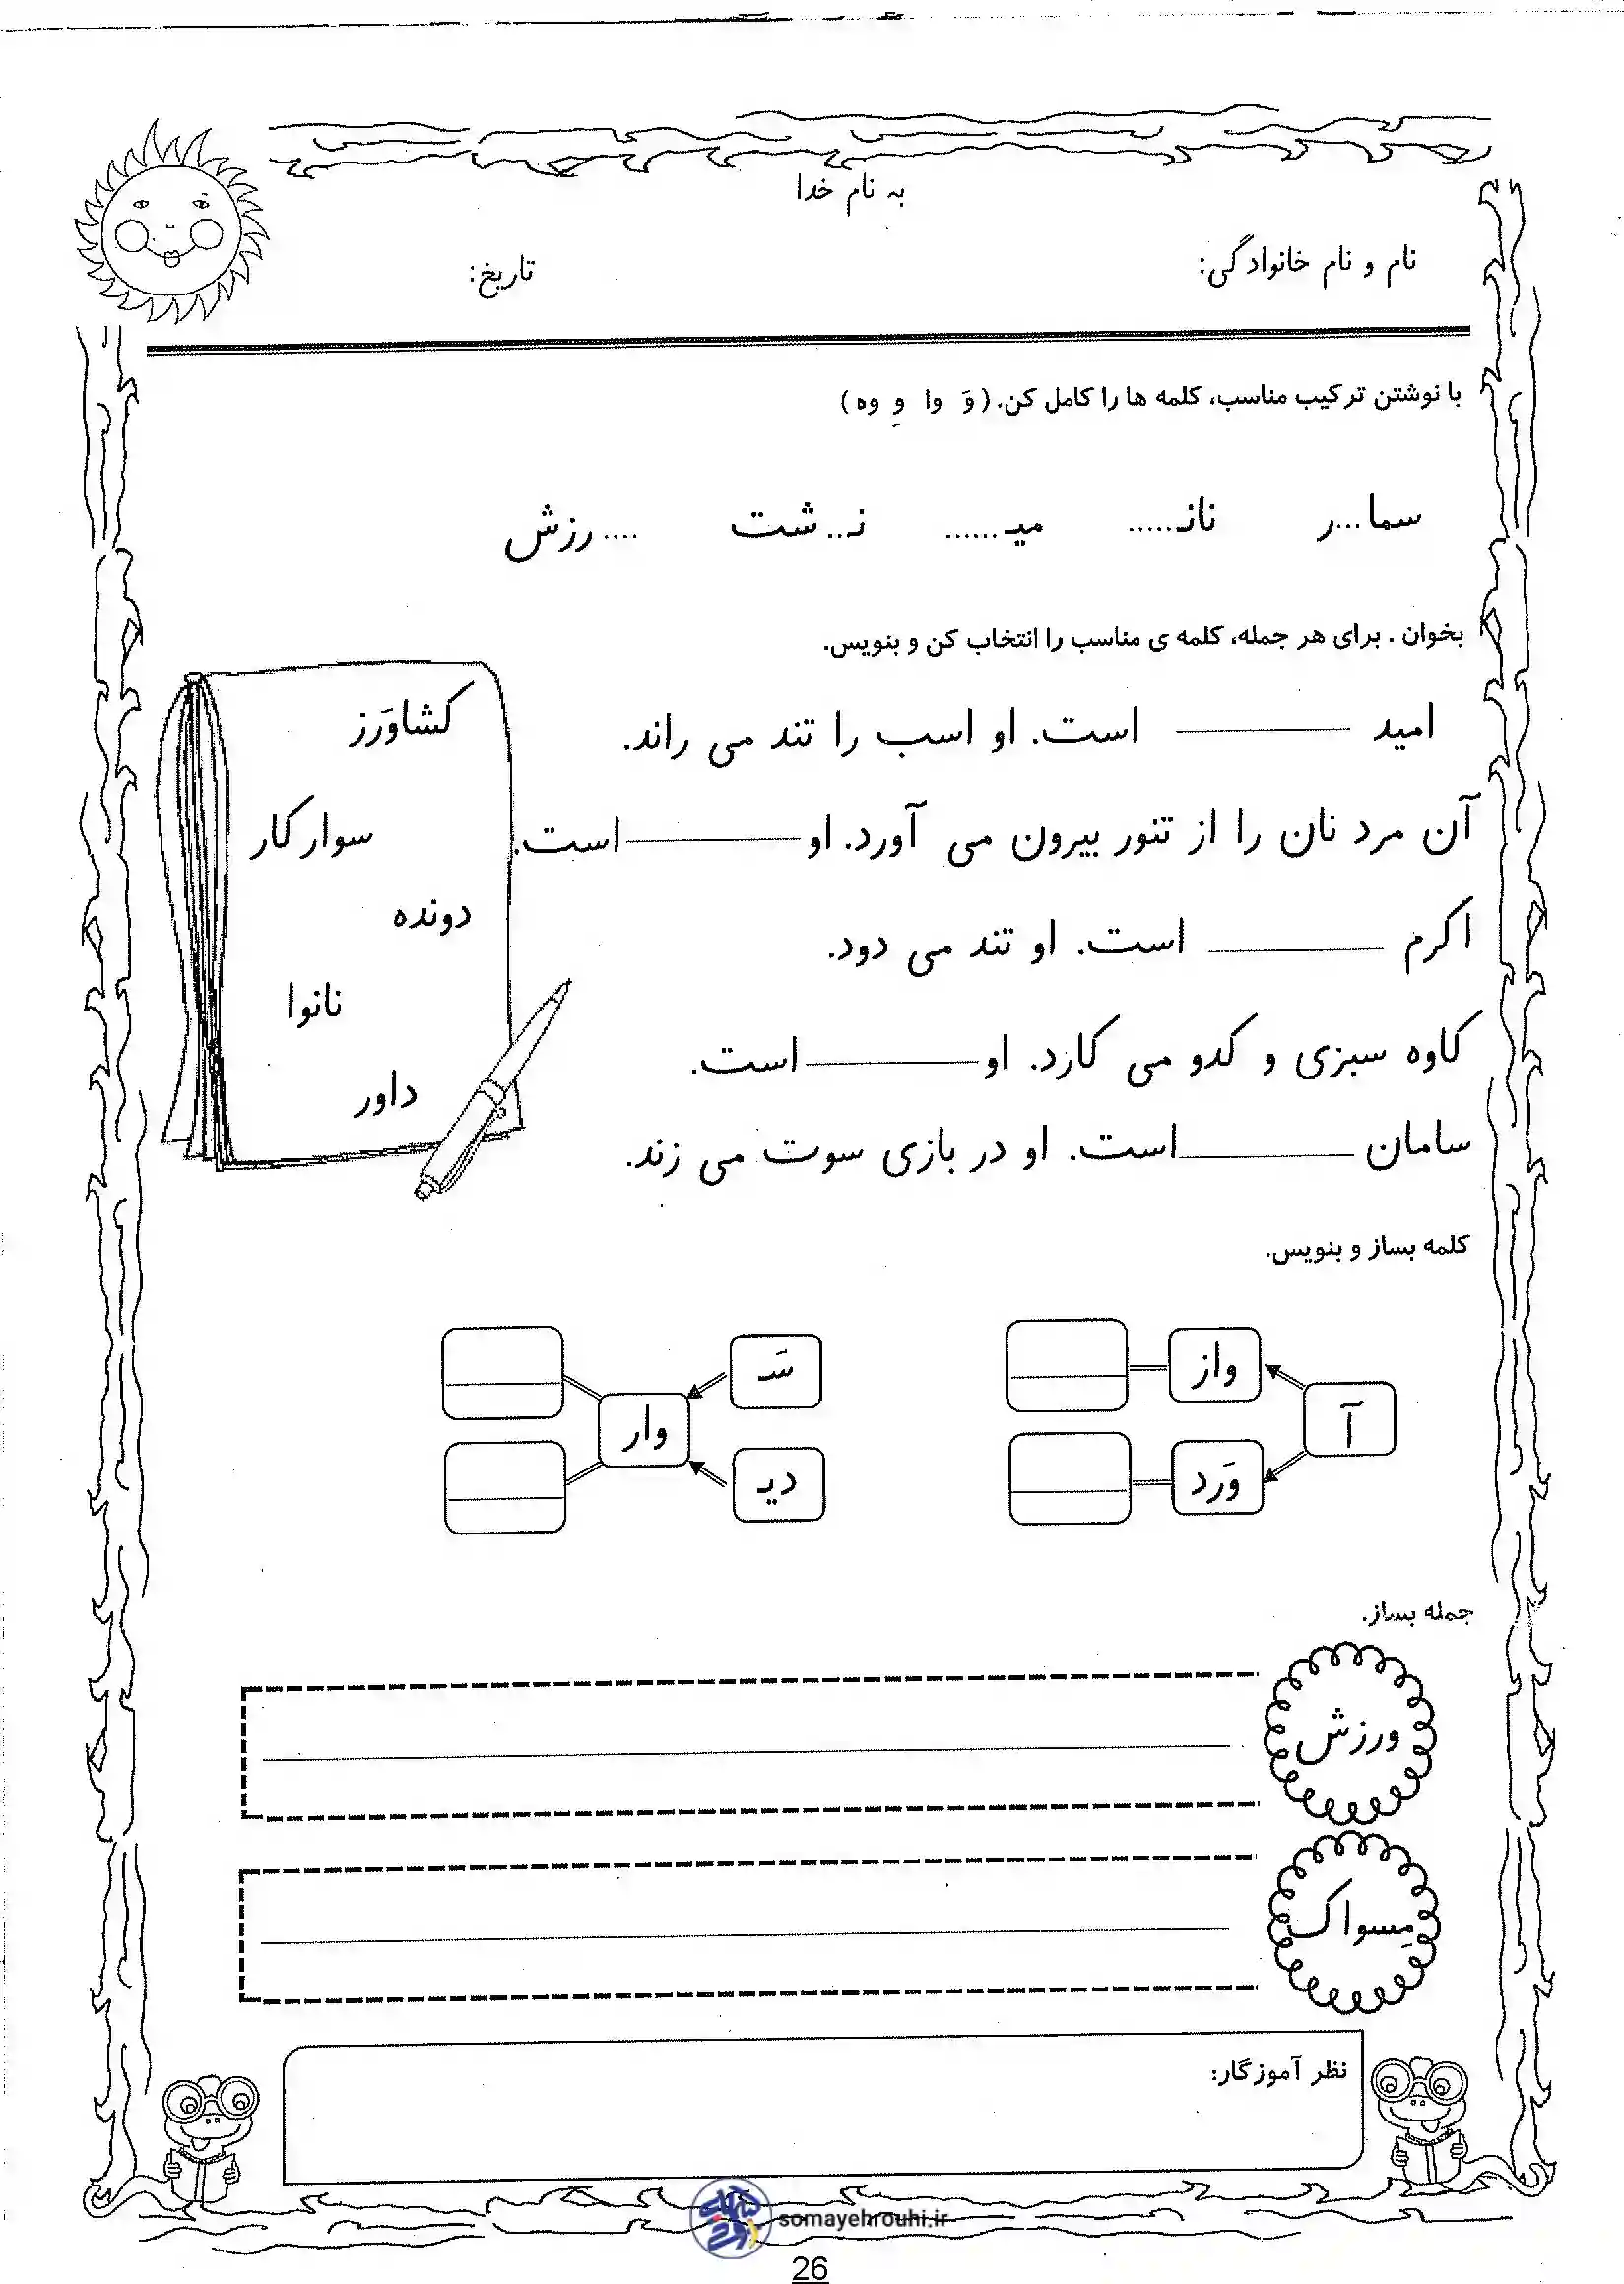 به نام خدا
نام و نام خانوادگی:
تاریخ:
با نوشتن ترکیب مناسب، کلمه ها را کامل کن. ( وَ وا وِ وه )
سما...ر نانـ...... میـ...... نـ...شت ....رزش
بخوان . برای هر جمله، کلمه ی مناسب را انتخاب کن و بنویس.
امید ــــــــــــ است. او اسب را تند می راند.
آن مرد نان را از تنور بیرون می آورد. او ــــــــــــ است.
اکرم ــــــــــــ است. او تند می دود.
کاوه سبزی و کدو می کارد. او ــــــــــــ است.
سامان ــــــــــــ است. او در بازی سوت می زند.
کشاوَرز
سوارکار
دونده
نانوا
داور
کلمه بساز و بنویس.
آ
واز
وَرد
سَـ
دیـ
وار
جمله بساز.
ورزش
مِسواک
نظر آموزگار:
somayehrouhi.ir
26